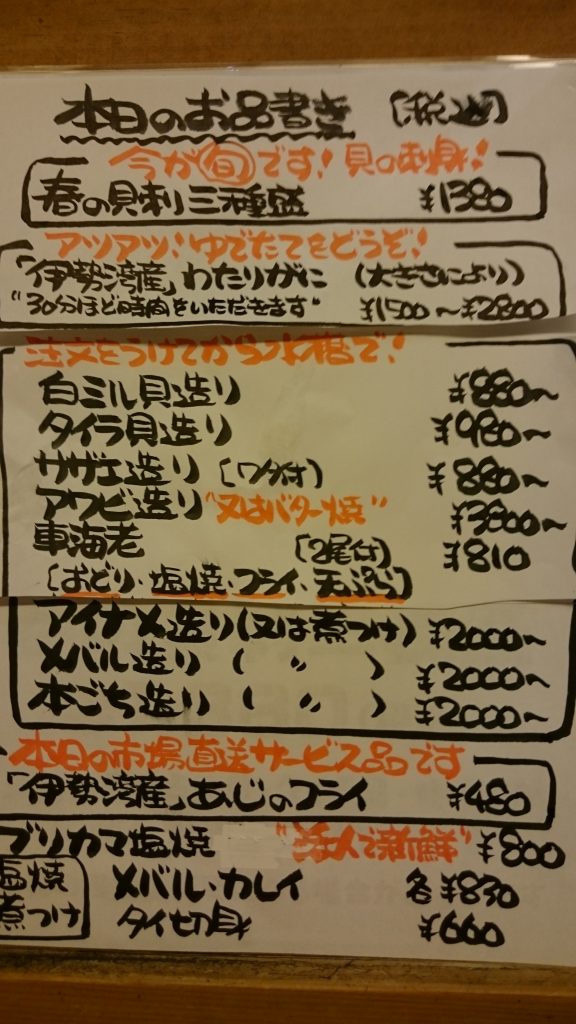 本日のお品書き [税込]
今が旬です!貝の刺身!
春の貝刺り三種盛 ¥1380
アツアツ!ゆでたてをどうぞ!
「伊勢湾産」わたりがに (大きさにより)
"30分ほど時間をいただきます" ¥1500〜¥2800
注文をうけてから水槽で!
白ミル貝造り ¥880〜
タイラ貝造り ¥980〜
サザエ造り [ワタ付] ¥880〜
アワビ造り "又はバター焼" ¥3800〜
車海老 [2尾付] ¥810
[おどり・塩焼・フライ・天ぷら]
アイナメ造り(又は煮つけ) ¥2000〜
メバル造り ( 〃 ) ¥2000〜
本ごち造り ( 〃 ) ¥2000〜
本日の市場直送サービス品です
「伊勢湾産」あじのフライ ¥480
ブリカマ塩焼 "活〆で新鮮" ¥800
塩焼 メバル・カレイ 各¥830
煮つけ タイ切身 ¥660